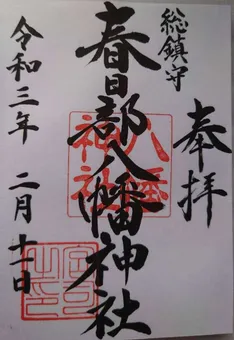 奉拝
総鎮守
春日部八幡神社
八幡
神社
令和三年 二月十一日
宮司
之印